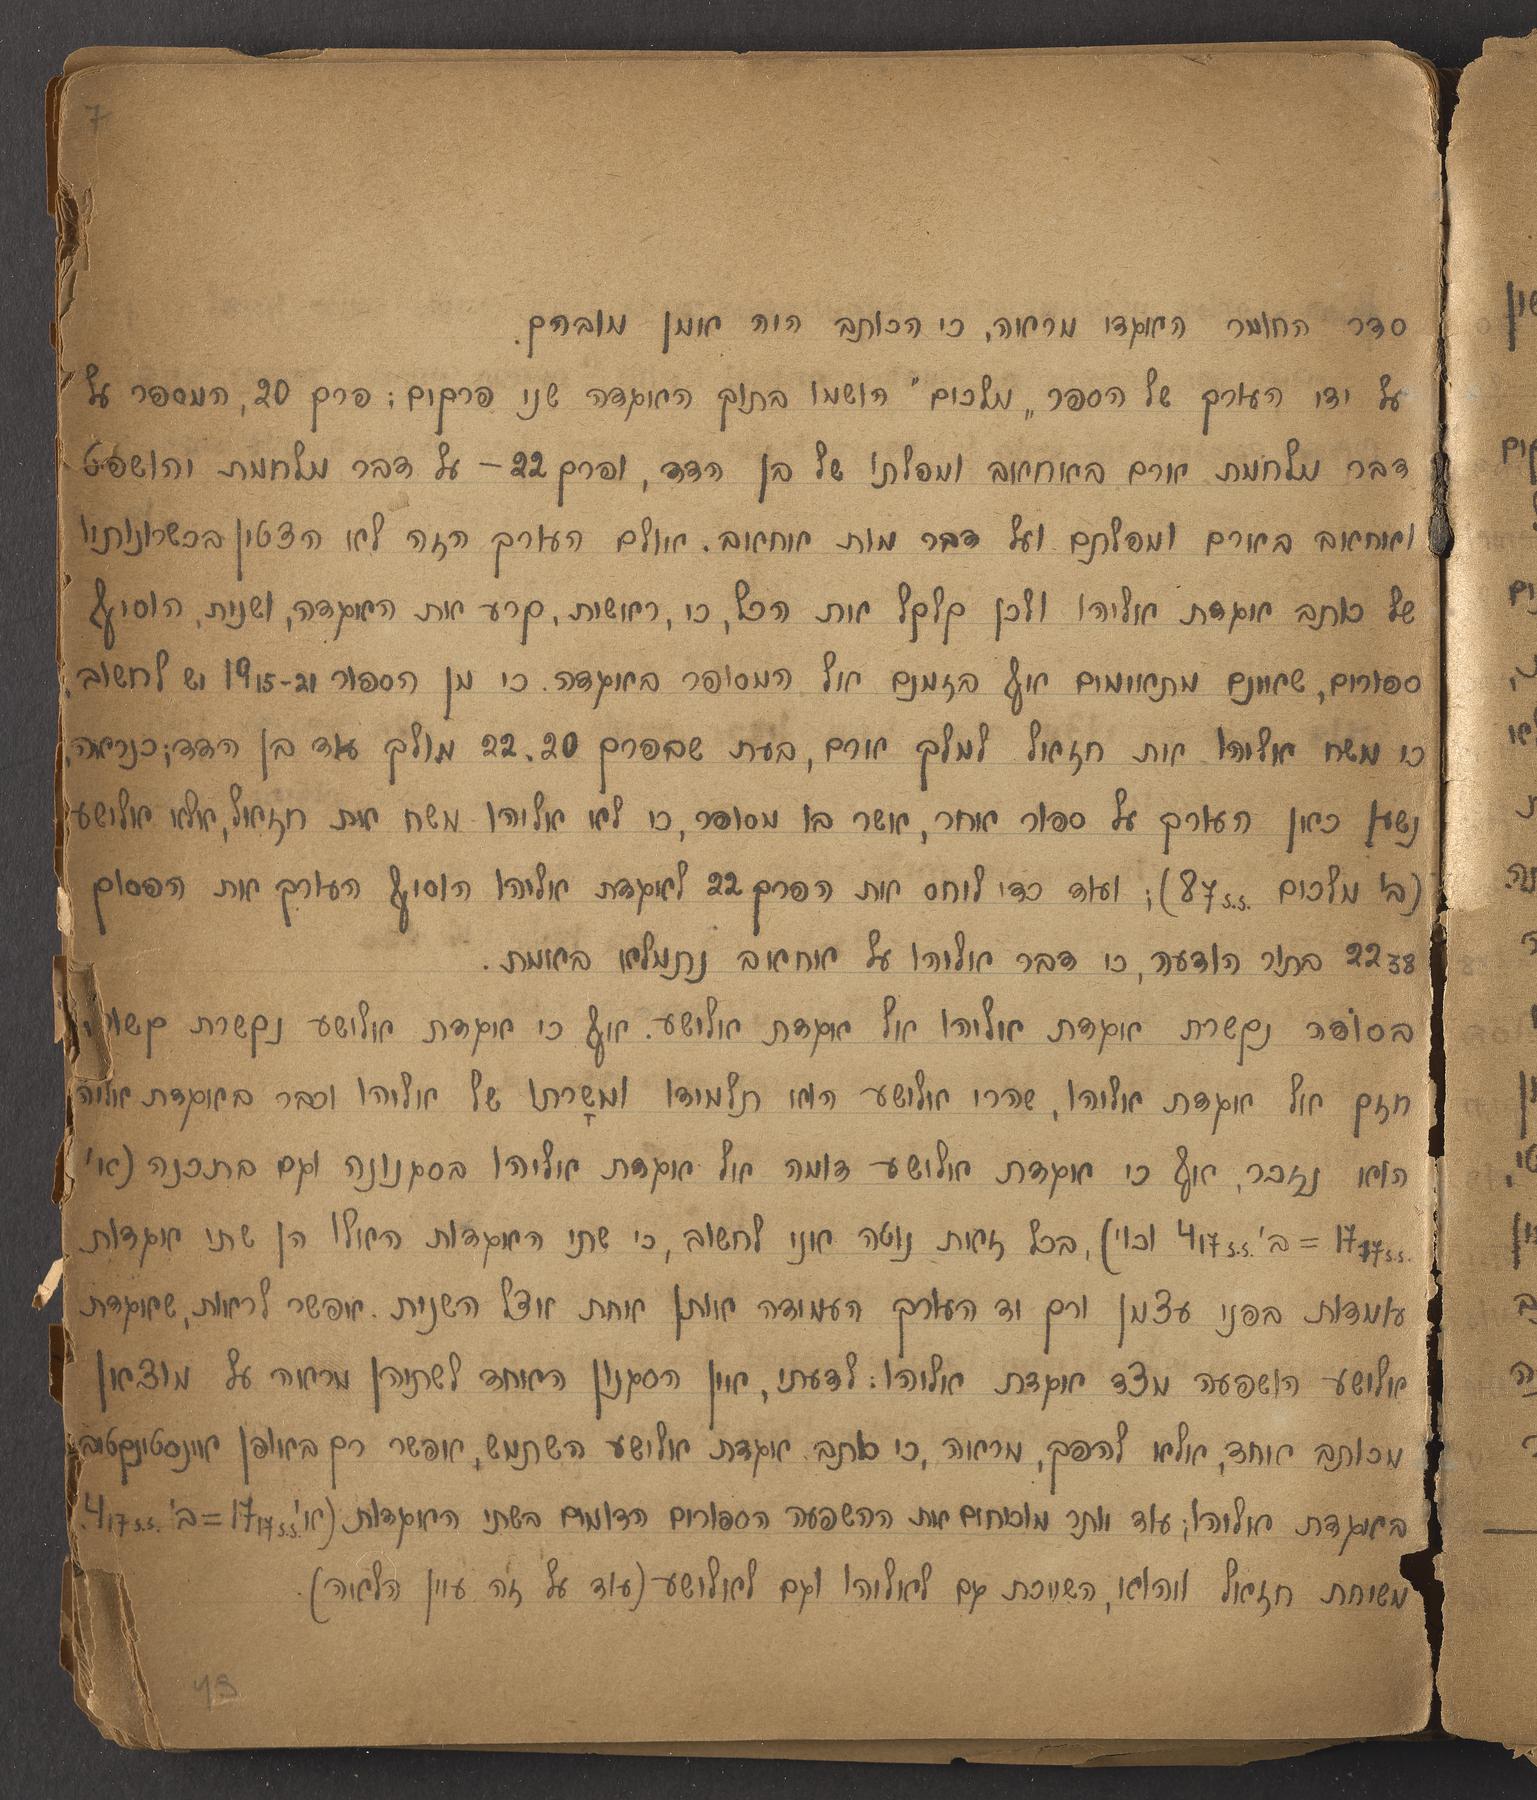 7
סדר החומר האגדי מראה, כי הכותב היה אומן מובהק.
על ידי העורך של הספר „מלכים" הושמו בתוך האגדה שני פרקים: פרק 20, המספר על
דבר מלחמת ארם באחאב ומפלתו של בן הדד, ופרק 22 – על דבר מלחמת יהושפט
ואחאב בארם ומפלתם ועל דבר מות אחאב. אולם העורך הזה לא הצטין בכשרונותיו
של כותב אגדת אליהו ולכן קלקל את הכל, כי, ראשית, קרע את האגדה, ושנית, הוסיף
ספורים, שאינם מתאימים אף בזמנם אל המסופר באגדה. כי מן הספור 19 15-21 יש לחשוב,
כי משח אליהו את חזאל למלך ארם, בעת שבפרק 20, 22 מולך עוד בן הדד; כנראה,
נשען כאן העורך על ספור אחר, אשר בו מסופר, כי לא אליהו משח את חזאל, אלא אלישע
(ב' מלכים 8 7 s.s.); ועוד כדי ליחס את הפרק 22 לאגדת אליהו הוסיף העורך את הפסוק
22 38 בתור הודעה, כי דבר אליהו על אחאב נתמלא באמת.
בסופה נקשרת אגדת אליהו אל אגדת אלישע. אף כי אגדת אלישע נקשרת קשור
חזק אל אגדת אליהו, שהרי אלישע הוא תלמידו ומשָרתו של אליהו וכבר באגדת אליהו
הוא נזכר, אף כי אגדת אלישע דומה אל אגדת אליהו בסגנונה וגם בתכנה (א'
17 17 s.s. = ב' 4 17 s.s. וכו'), בכל זאת נוטה אני לחשוב, כי שתי האגדות האלו הן שתי אגדות
עומדות בפני עצמן ורק יד העורך העמידה אותן אחת אצל השנית. אפשר לראות, שאגדת
אלישע הושפעה מצד אגדת אליהו: לדעתי, אין הסגנון האחד לשתיהן מראה על מוצאן
מכותב אחד, אלא להפך, מראה, כי כותב אגדת אלישע השתמש, אפשר רק באופן אינסטינקטיבי
באגדת אליהו; עוד יותר מוכיחים את ההשפעה הספורים הדומים בשתי האגדות (א' 17 17 s.s. = ב' 4 17 s.s.
משיחת חזאל ויהוא, השייכת גם לאליהו וגם לאלישע (עוד על זה עיין הלאה).
43